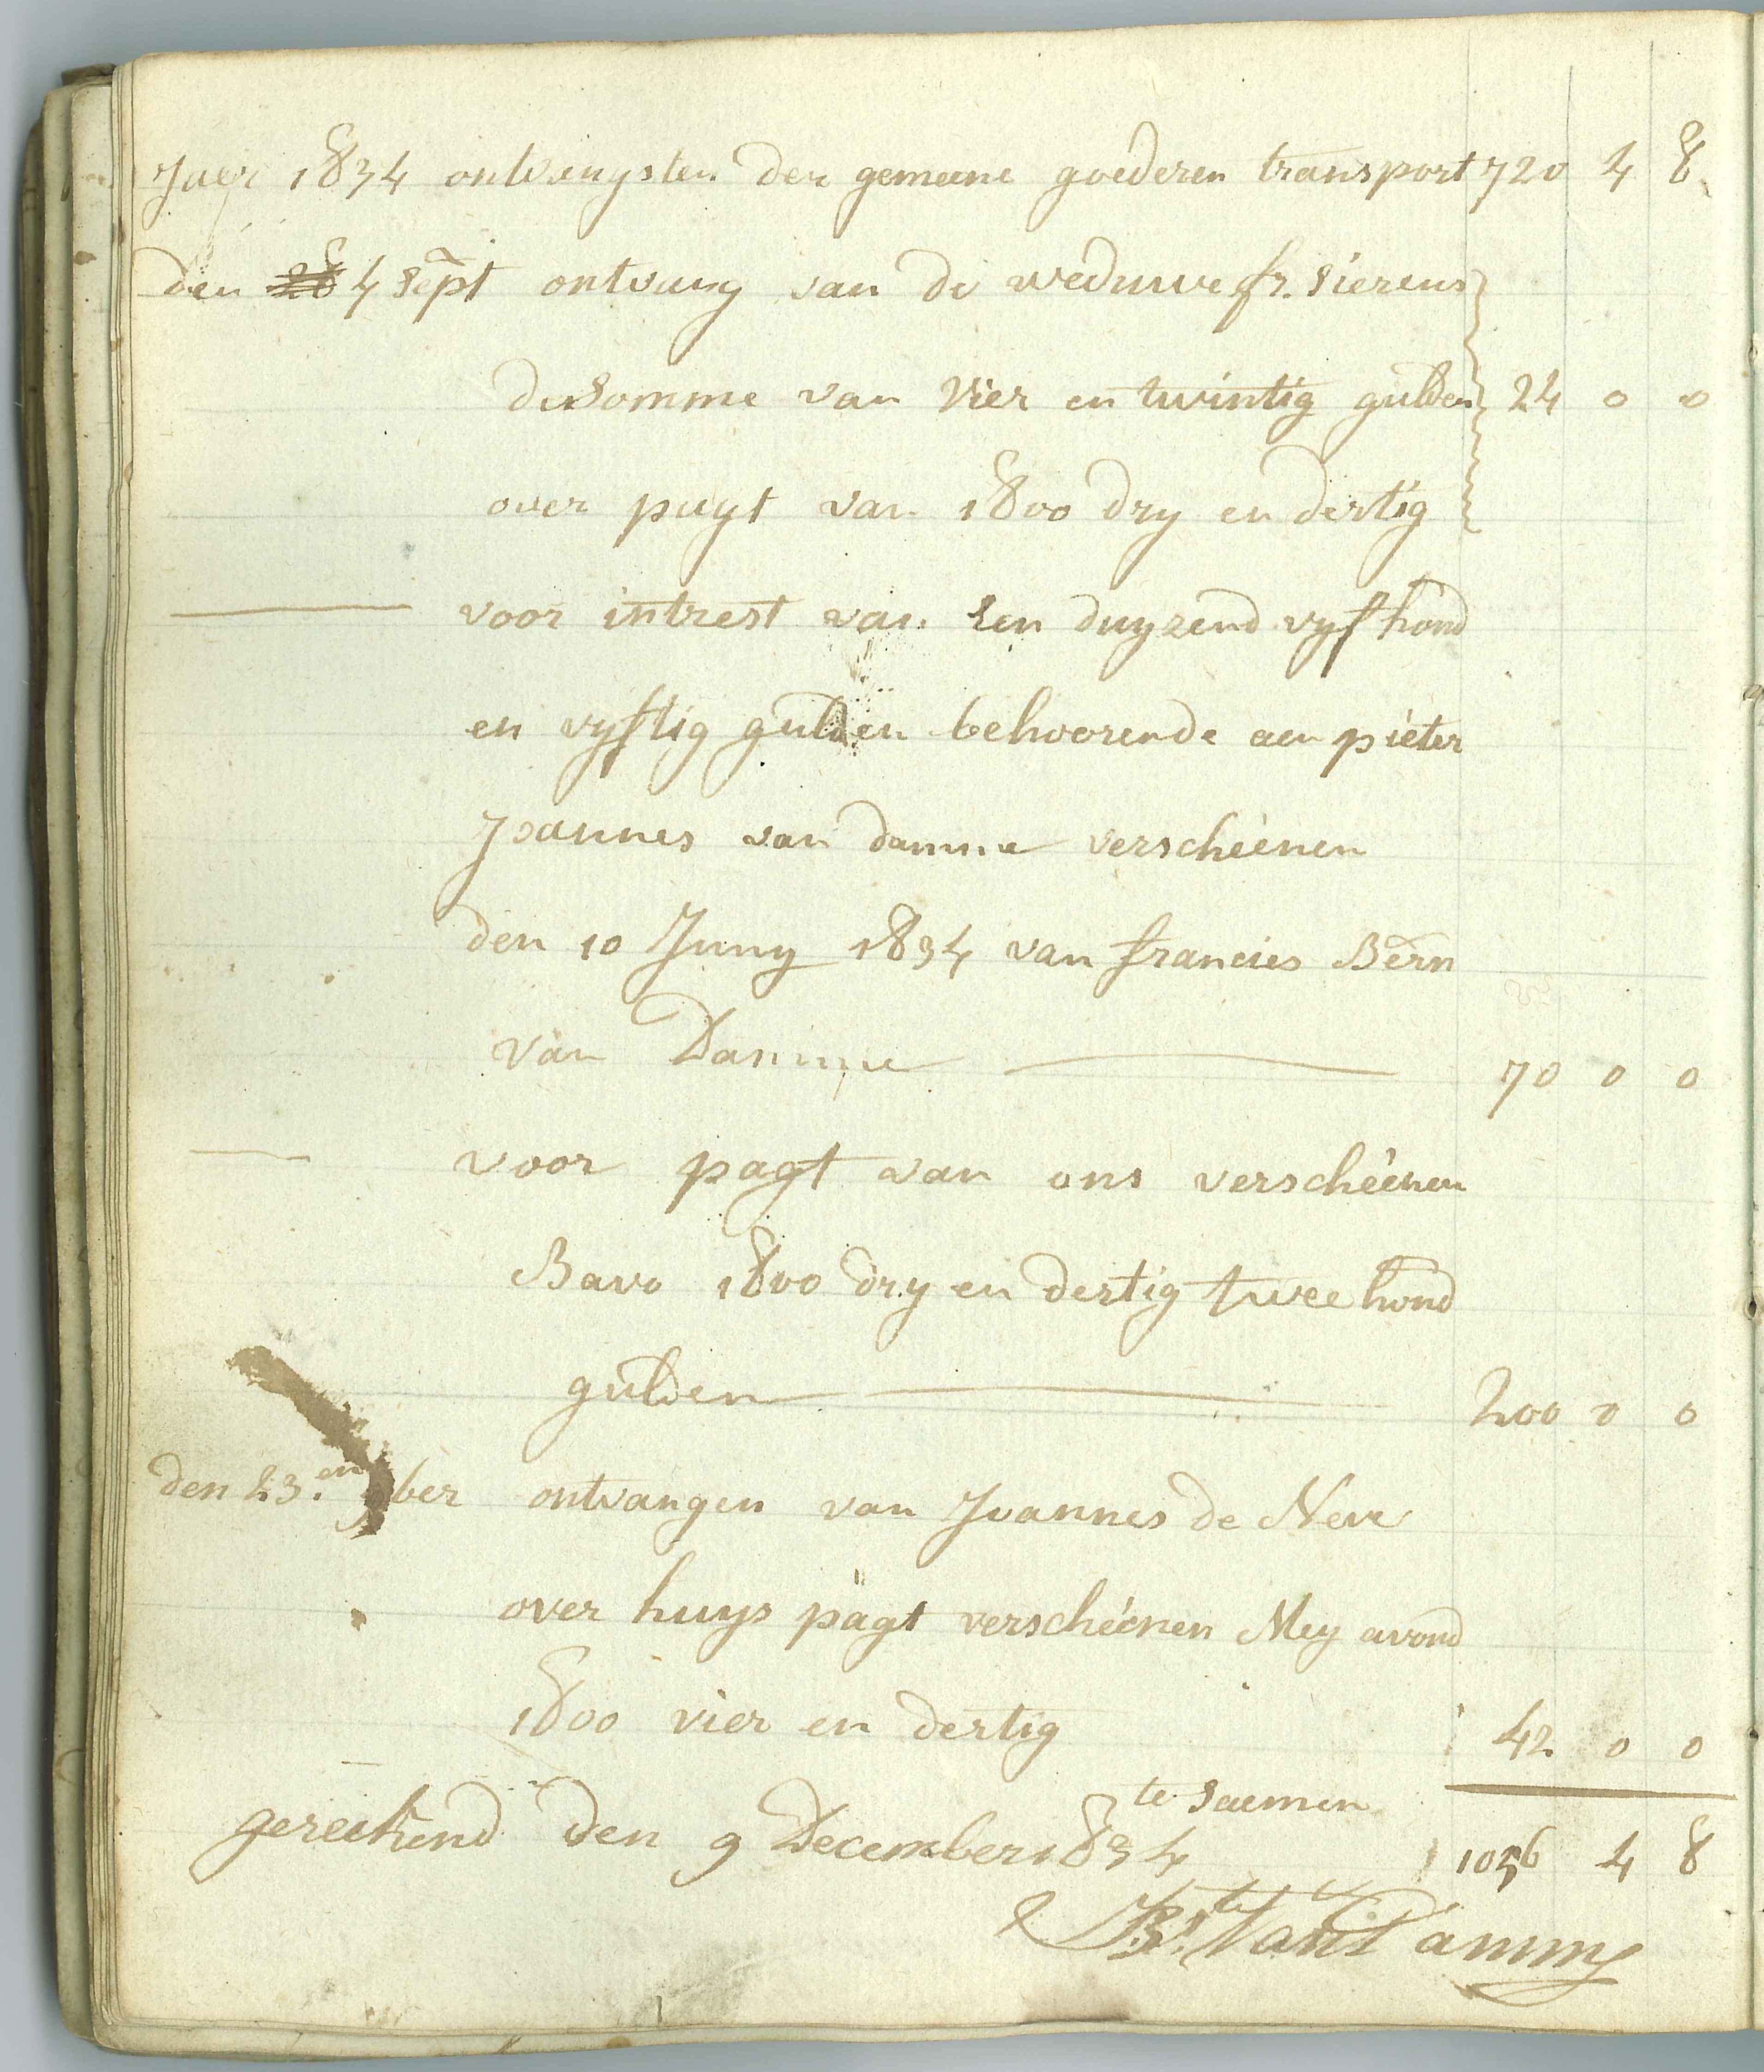 Jaer 1834 ontvangsten der gemeene goederen transport 720 4 8
den 28 4 sept ontvang van de weduwe fr. Sierens
de Somme van Vier en twintig gulden 24 0 0
over pagt van 1800 dry en dertig
voor intrest van Een duyzend vyf hond
en vyftig gulden behoorende aen pieter
Joannes van damme verscheenen
den 10 Juny 1834 van francies Bern
van Damme 70 0 0
voor pagt van ons verscheenen
Bavo 1800 dry en dertig twee hond
gulden 200 0 0
den 23.en 9ber ontvangen van Joannes de Neve
over huys pagt verscheenen Mey avond
1800 vier en dertig 42 0 0
te saemen
gereekend den 9 December 1834 1056 4 8
J Bte Van Damme